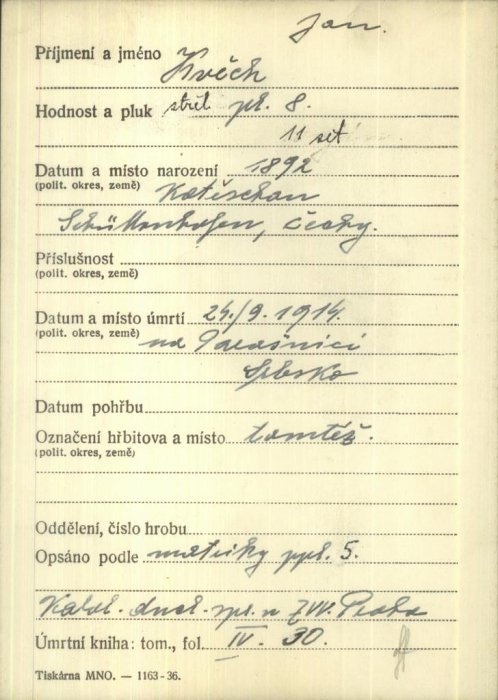 Jan.
Příjmení a jméno Kvěch
Hodnost a pluk střel pl. 8.
11 set
Datum a místo narození 1892
(polit. okres, země) Kotěschau
Schüttenhofen, Čechy.
Příslušnost
(polit. okres, země)
Datum a místo úmrtí 24./9. 1914.
(polit. okres, země) na Parašnici
Srbsko
Datum pohřbu
Označení hřbitova a místo tamtéž.
(polit. okres, země)
Oddělení, číslo hrobu
Opsáno podle matriky ppl. 5.
Katol. duch. spr. u ZVV. Praha
Úmrtní kniha: tom., fol. IV. 30.
Tiskárna MNO. — 1163-36.